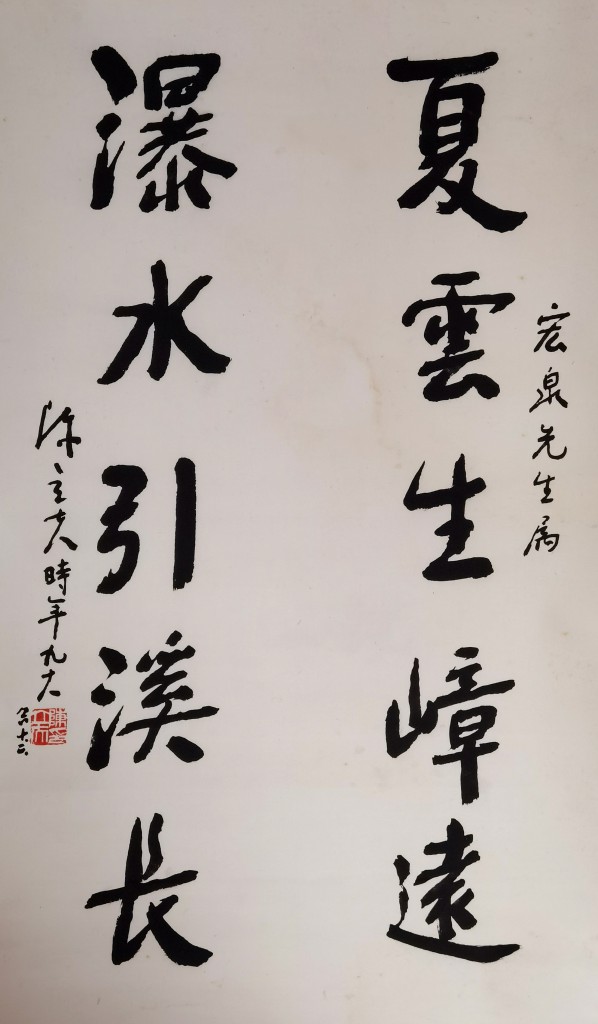 宏泉先生屬
夏雲生嶂遠
瀑水引溪長
陳立夫時年九十八